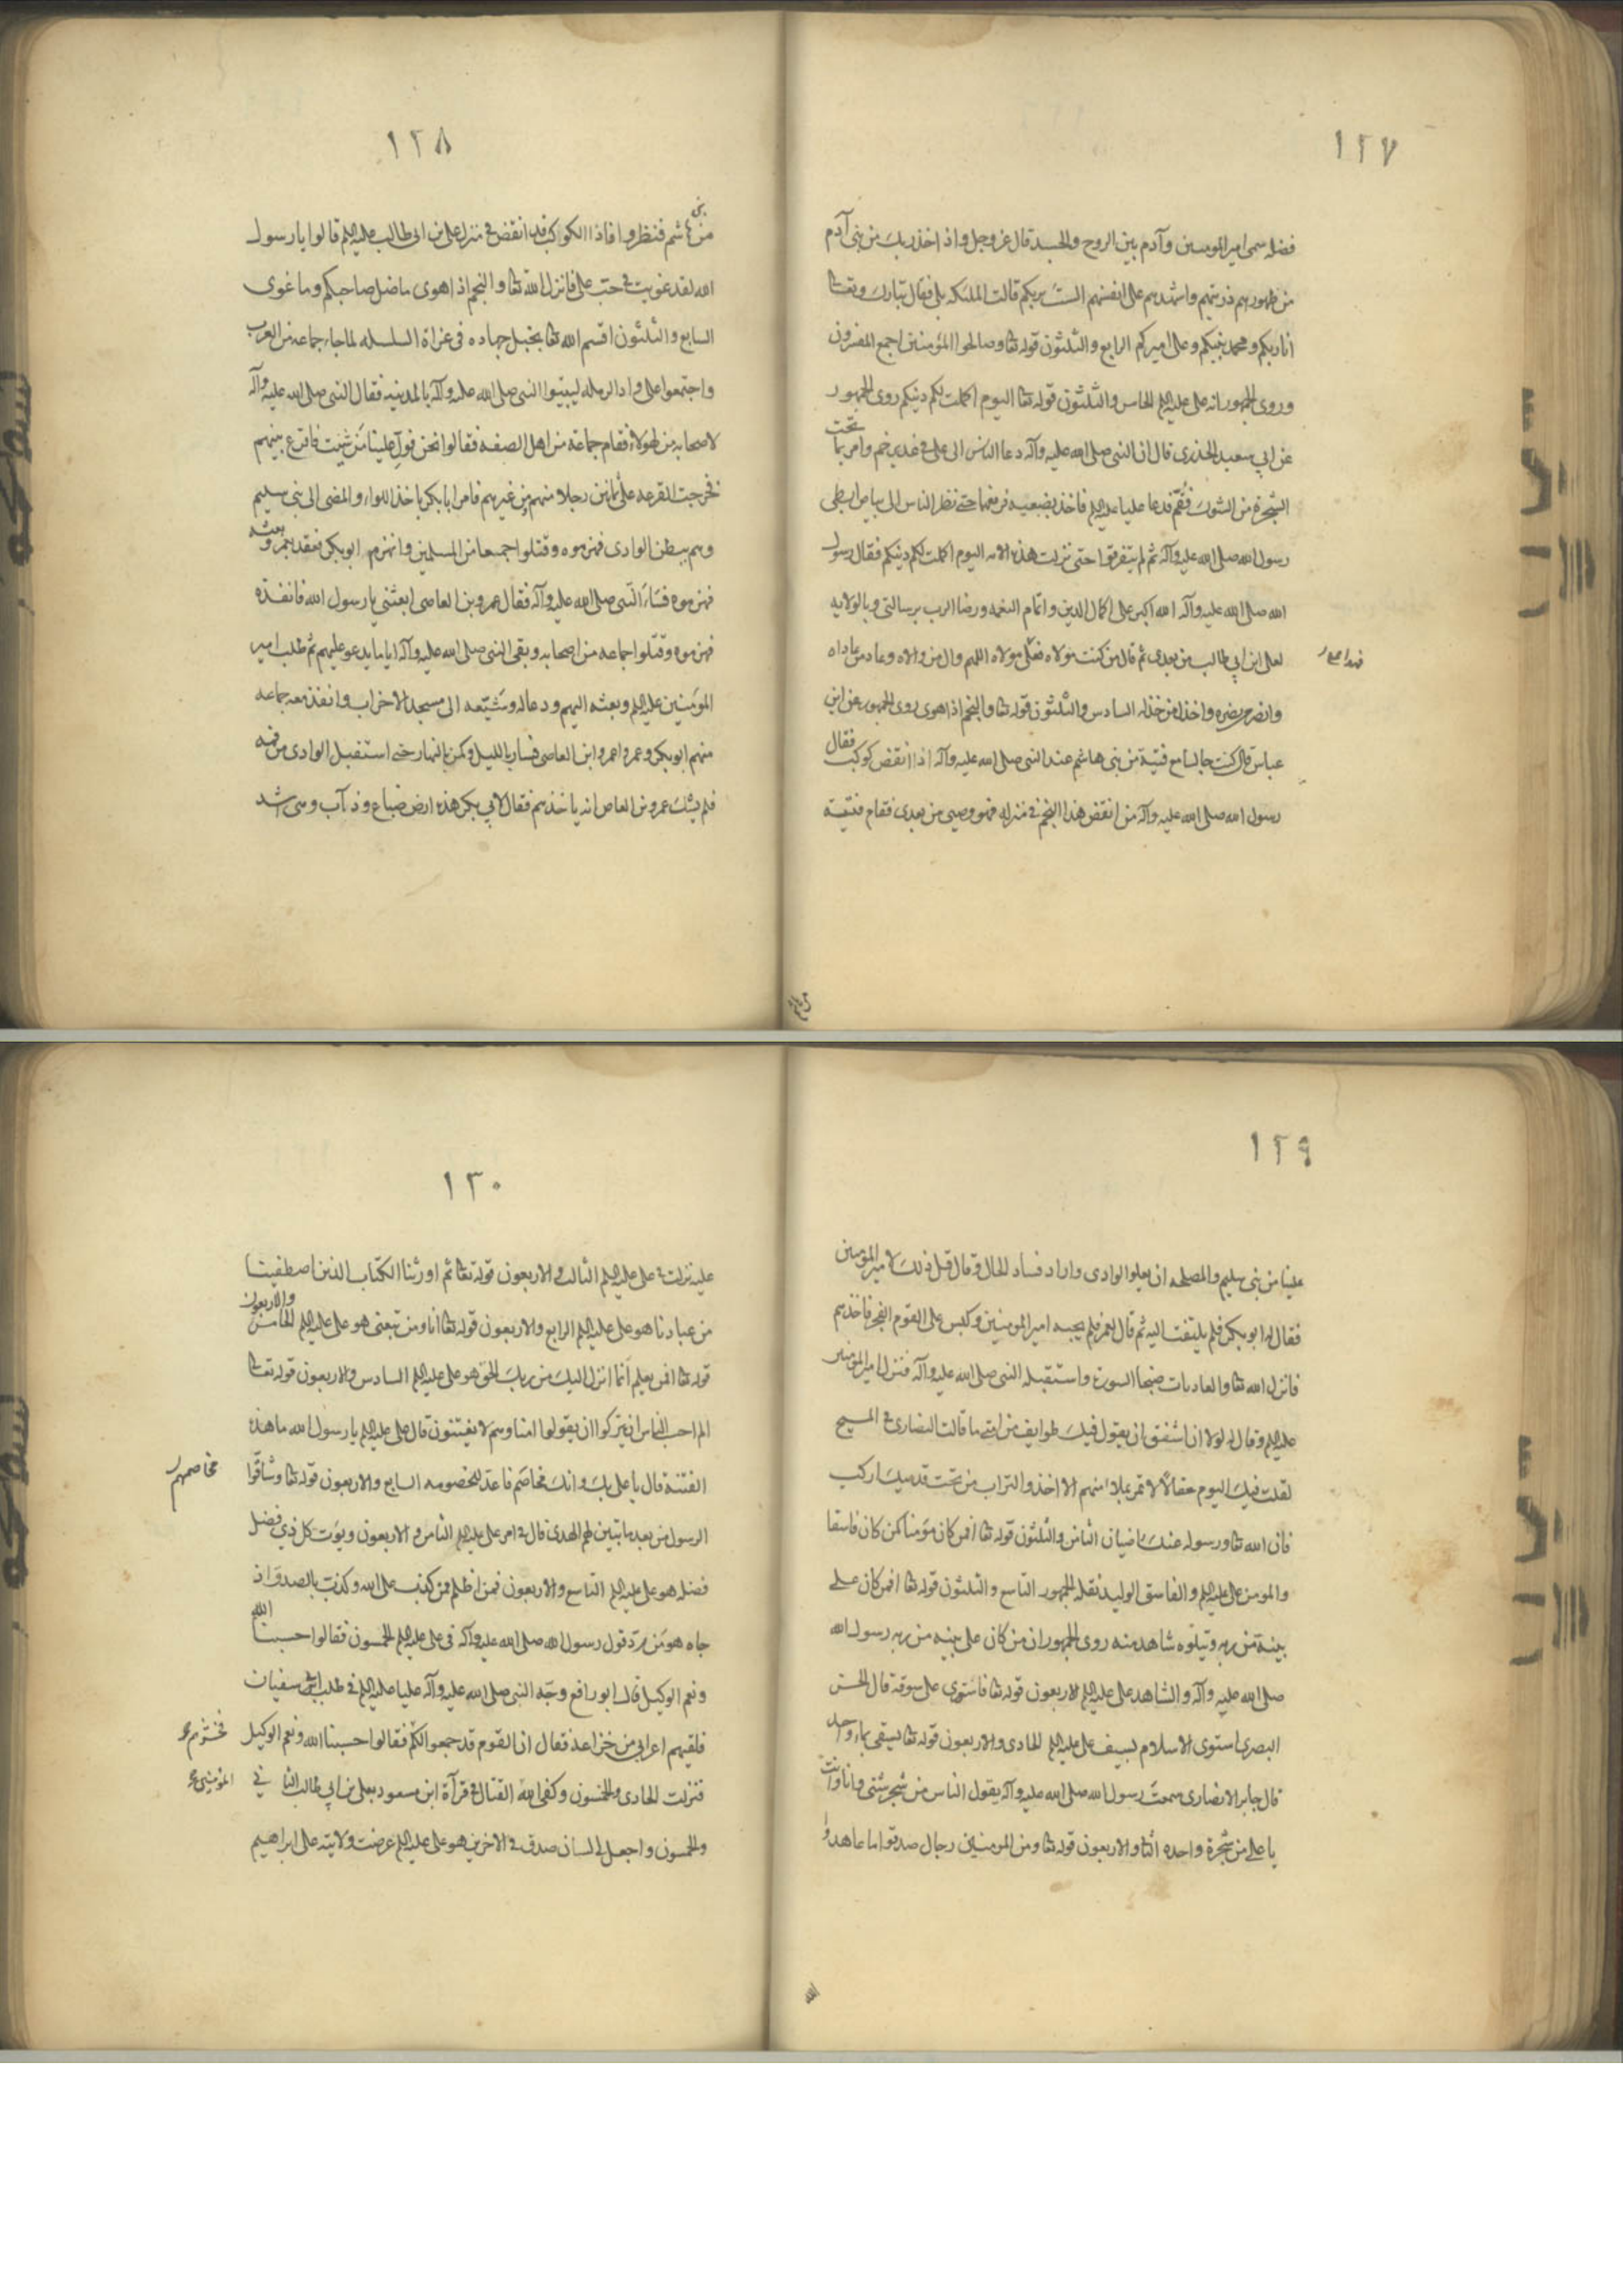 ١٢٧
فضله سمى اميرالمومنين وآدم بين الروح والجسد قال عز وجل واذ اخذ ربك من بنى آدم
من ظهورهم ذريتهم واشهدهم على انفسهم الست بربكم قالت الملئكه بلى فقال تبارك وتعالى
انا ربكم ومحمد نبيكم وعلى اميركم الرابع والثلثون قوله تعا وصالحوا المؤمنين اجمع المفسرون
وروى الجمهور انه على عليه السلم الخامس والثلثون قوله تعا اليوم اكملت لكم دينكم روى الجمهور
عن ابي سعيد الخدرى قال ان النبى صلى الله عليه وآله دعا الناس الى على فى غدير خم وامر بما تحت
الشجرة من الشوك فقم فدعا عليا عليه السلم فاخذ بضبعيه فرفعهما حتى نظر الناس الى بياض ابطى
رسول الله صلى الله عليه وآله ثم لم يتفرقوا حتى نزلت هذه الايه اليوم اكملت لكم دينكم فقال رسول
الله صلى الله عليه وآله الله اكبر على اكمال الدين واتمام النعمه ورضا الرب برسالتى وبالولايه
لعلى ابن ابي طالب من بعدى ثم قال من كنت مولاه فعلى مولاه اللهم وال من والاه وعاد من عاداه
وانصر من نصره واخذل من خذله السادس والثلثون قوله تعا والنجم اذا هوى روى الجمهور عن ابن
عباس قال كنت جالسا مع فتية من بنى هاشم عند النبى صلى الله عليه وآله اذا انقض كوكب فقال
رسول الله صلى الله عليه وآله من انقض هذا النجم فى منزله فهو وصيى من بعدى فقام فتية
١٢٨
من بنى هاشم فنظروا فاذا الكوكب قد انقض فى منزل على بن ابى طالب عليه السلم قالوا يا رسول
الله لقد غويت فى حب على فانزل الله تعا والنجم اذا هوى ما ضل صاحبكم وما غوى
السابع والثلثون اقسم الله تعا بخيل جهاده فى غزاة السلسله لما جاء جماعه من العرب
واجتمعوا على واد الرمله ليبيتوا النبى صلى الله عليه وآله بالمدينه فقال النبى صلى الله عليه وآله
لاصحابه من لهولاء فقام جماعة من اهل الصفه فقالوا نحن فول علينا من شئت فاقرع بينهم
فخرجت القرعه على ثمانين رجلا منهم من غيرهم فامر ابابكر باخذ اللواء والمضى الى بنى سليم
وهم ببطن الوادى فهزموه وقتلوا جمعا من المسلمين وانهزم ابوبكر فعقد لعمر وبعثه
فهزموه فساء النبى صلى الله عليه وآله فقال عمرو بن العاص ابعثنى يا رسول الله فانفذه
فهزموه وقتلوا جماعه من اصحابه وبقى النبى صلى الله عليه وآله اياما يدعو عليهم ثم طلب امير
المؤمنين عليه السلم وبعثه اليهم ودعا له وشيعه الى مسجد الاحزاب وانفذ معه جماعه
منهم ابوبكر وعمر وعمرو ابن العاص فسار بالليل وكمن بالنهار حتى استقبل الوادى من فمه
فلم يشك عمرو بن العاص انه ياخذهم فقال لابي بكر هذه ارض ضباع وذئاب وهى اشد
١٢٩
علينا من بنى سليم والمصلحه ان يعلو الوادى واراد فساد الحال وقال قل ذلك لامير المؤمنين
فقال له ابو بكر فلم يلتفت اليه ثم قال لعمر فلم يجبه امير المومنين وكبس على القوم الفجر فاخذهم
فانزل الله تعا والعاديات ضبحا السورة واستقبله النبى صلى الله عليه وآله فنزل امير المؤمنين
عليه السلم وقال له لولا ان اشفق ان يقول فيك طوايف من امتى ما قالت النصارى فى المسيح
لقلت فيك اليوم مقالا لا تمر بملا منهم الا اخذوا التراب من تحت قدميك اركب
فان الله تعا ورسوله عنك راضيان الثامن والثلثون قوله تعا افمن كان مؤمنا كمن كان فاسقا
والمومن على عليه السلم والفاسق الوليد نقله الجمهور التاسع والثلثون قوله تعا افمن كان على
بينة من ربه ويتلوه شاهد منه روى الجمهور ان من كان على بينه من ربه رسول الله
صلى الله عليه وآله والشاهد على عليه السلم الاربعون قوله تعا فاستوى على سوقه قال الحسن
البصرى استوى الاسلام بسيف على عليه السلم الحادى والاربعون قوله تعا يسقى بماء واحد
قال جابر الانصارى سمعت رسول الله صلى الله عليه وآله يقول الناس من شجر شتى وانا وانت
يا على من شجرة واحده الثا والاربعون قوله تعا ومن المومنين رجال صدقوا ما عاهدوا
الله
١٣٠
عليه نزلت فى على عليه السلم الثالث والاربعون قوله تعا ثم اورثنا الكتاب الذين اصطفينا
من عبادنا هو على عليه السلم الرابع والاربعون قوله تعا انا ومن تبعنى هو على عليه السلم الخامس والاربعون
قوله تعا افمن يعلم انما انزل اليك من ربك الحق هو على عليه السلم السادس والاربعون قوله تعالى
الم احسب الناس ان يتركوا ان يقولوا امنا وهم لا يفتنون قال على عليه السلم يا رسول الله ما هذه
الفتنة قال يا على بك وانك مخاصم فاعد للخصومه السابع والاربعون قوله تعا وشاقوا
مخاصمهم
الرسول من بعد ما تبين لهم الهدى قال فى امر على عليه السلم الثامن والاربعون ويؤت كل ذي فضل
فضله هو على عليه السلم التاسع والاربعون فمن اظلم ممن كذب على الله وكذب بالصدق اذ
جاه هو من رد قول رسول الله صلى الله عليه وآله فى على عليه السلم الخمسون فقالوا حسبنا الله
ونعم الوكيل قال ابو رافع وجه النبى صلى الله عليه وآله عليا عليه السلم فى طلب ابى سفيان
فلقيهم اعرابى من خزاعة فقال ان القوم قد جمعوا لكم فقالوا حسبنا الله ونعم الوكيل
فنزلت الحادى والخمسون وكفى الله القتال فى قرآءة ابن مسعود بعلى بن ابي طالب الثانى
المؤمنين
والخمسون واجعل لى لسان صدق فى الاخرين هو على عليه السلم عرضت ولايته على ابراهيم